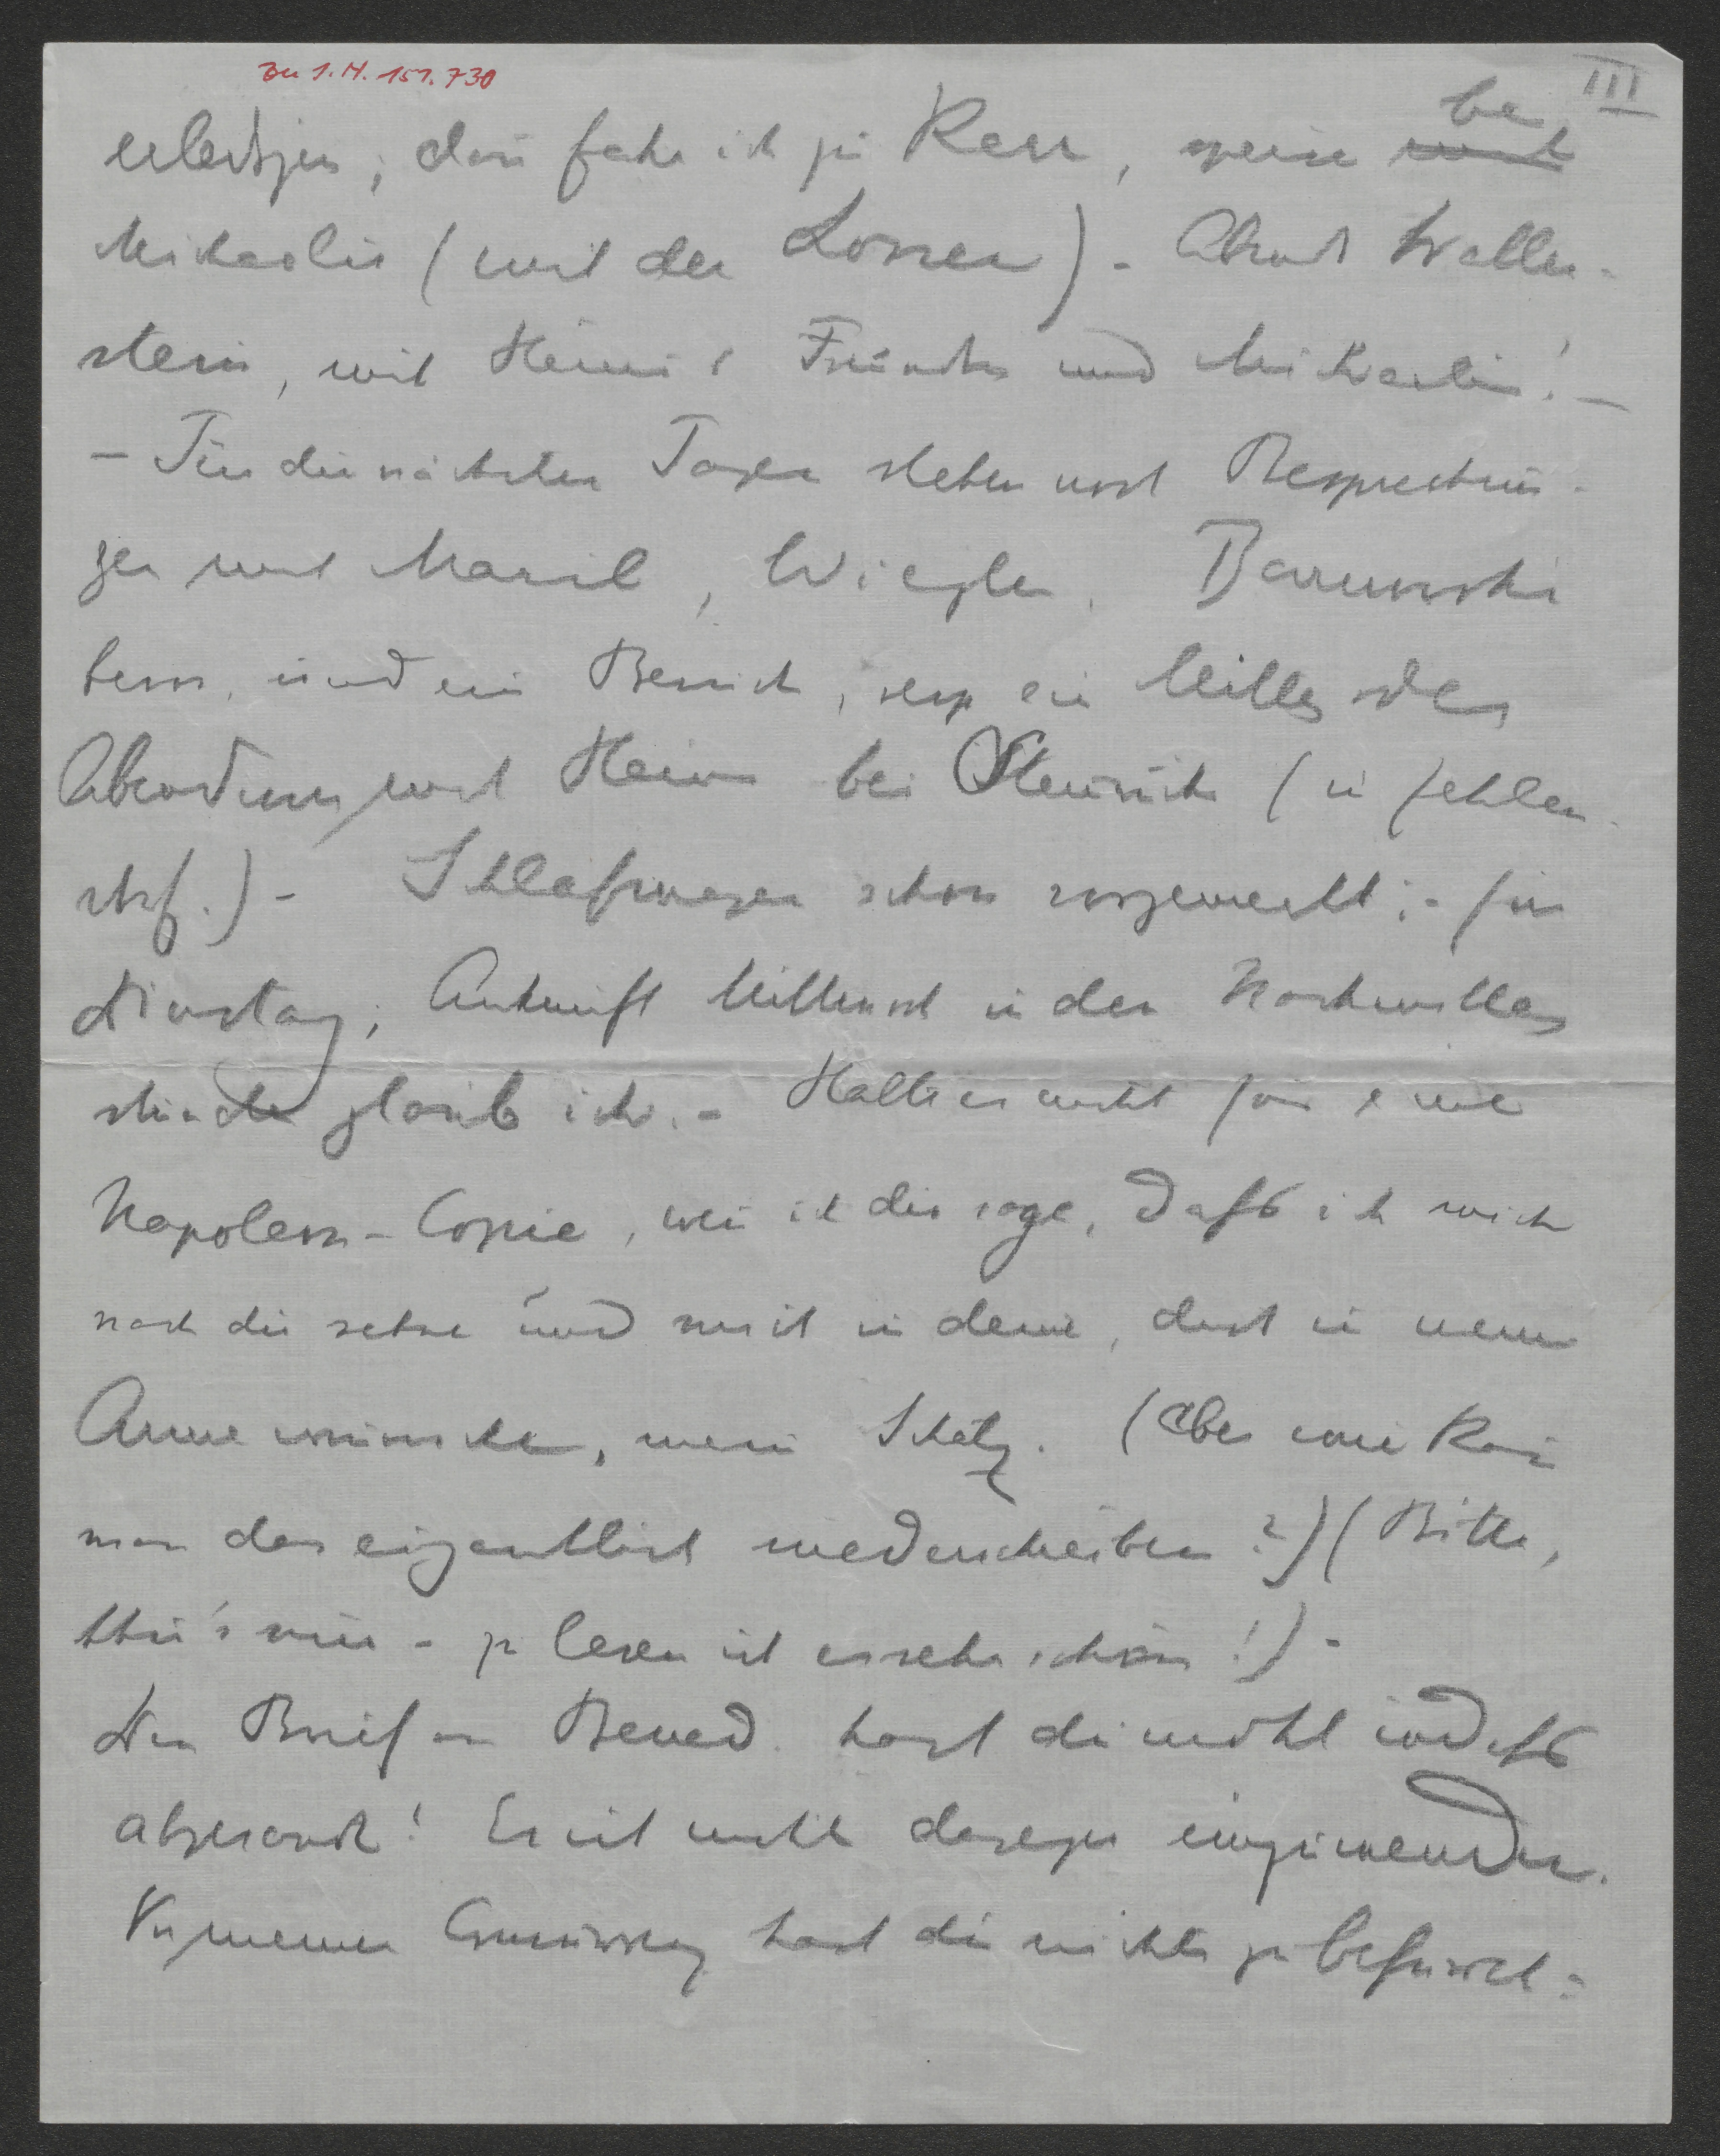 Zu I.N. 151.730
III
erledigen; dann fahr ich zu Kerr, speise bei
Mikaelis (mit der Lossen) – Abend Wallen-
stein, mit Heini's Freunden und Mikaelis! –
– Für die nächsten Tage stehen noch Besprechun-
gen mit Maril, Wiegler, Barnowski
bevor, und ein Besuch, resp ein Mittag oder
Abendessen mit Heini bei Steinrück (in Zehlen-
dorf.) – Schlafwagen schon vorgemerkt; – für
Dienstag; Ankunft Mittwoch in den Nachmittag
stunden glaub ich. – Halte es nicht für eine
Napoleon-Copie, wenn ich dir sage, dass ich mich
nach dir sehne und mich in deine, dich in meine
Arme wünsche, mein Schatz. (Aber wie kann
man das eigentlich niederschreiben?) (Bitte,
thu's nur – zu lesen ist es sehr schön!) –
Den Brief an Bened. hast du wohl indess
abgesandt! Es ist nichts dagegen einzuwenden.
Von meiner hast du nichts zu befürch-